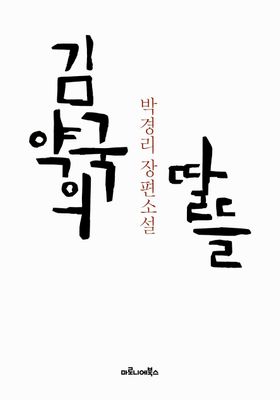 김
약국의
딸들
박경리 장편소설
마로니에북스